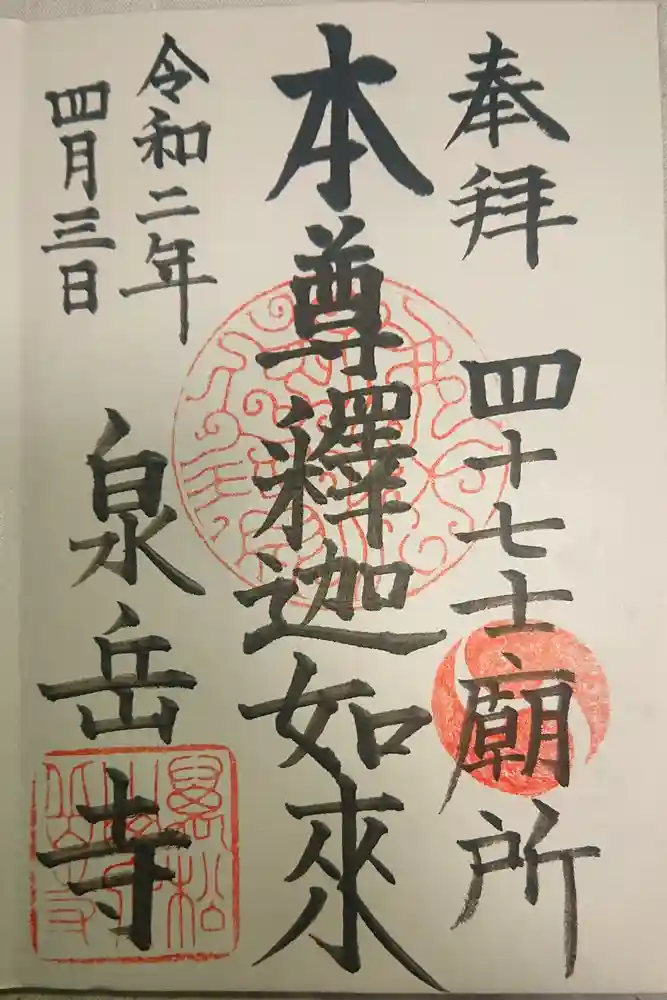 奉拝 四十七士廟所
本尊釋迦如來
令和二年
四月三日
泉岳寺